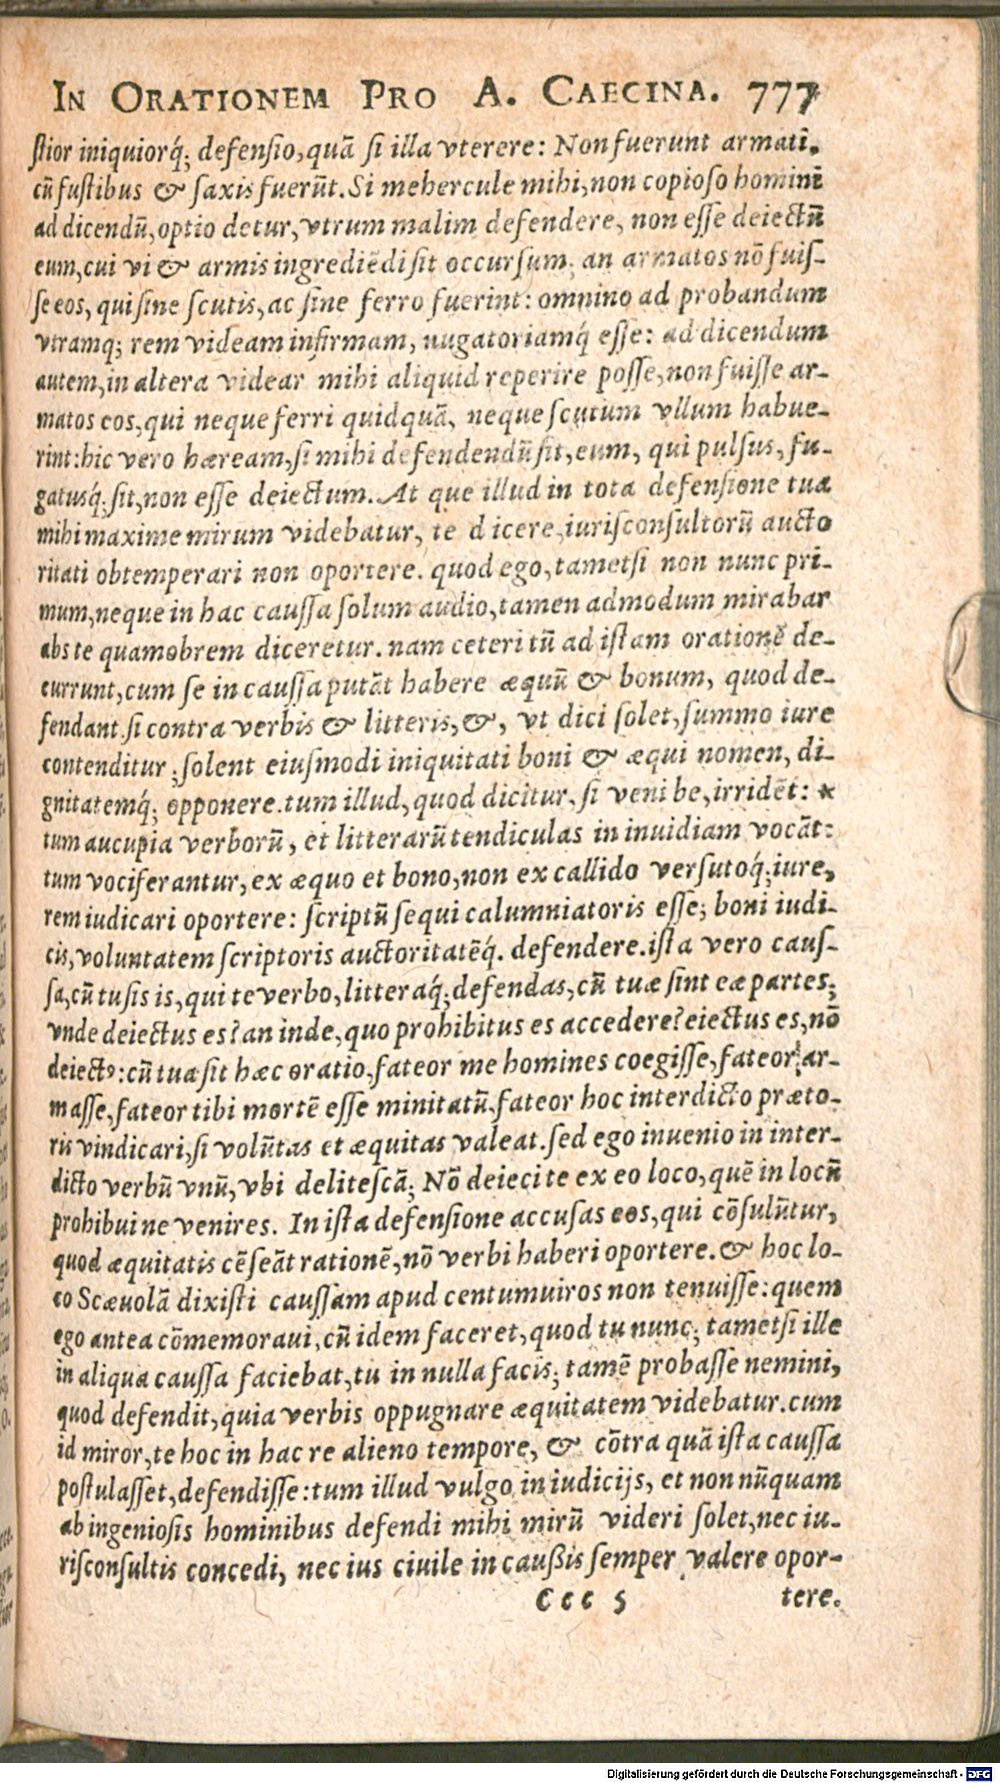 IN ORATIONEM PRO A. CAECINA. 777
ſtior iniquiorq́; defenſio, quã ſi illa vterere: Non fuerunt armati,
cũ fuſtibus & ſaxis fuerũt. Si mehercule mihi, non copioſo homini
ad dicendũ, optio detur, vtrum malim defendere, non eſſe deiectũ
eum, cui vi & armis ingrediẽdi ſit occurſum; an armatos nõ fuiſ-
ſe eos, qui ſine ſcutis, ac ſine ferro fuerint: omnino ad probandum
vtramq; rem videam infirmam, nugatoriamq́ eſſe: ad dicendum
autem, in altera videar mihi aliquid reperire poſſe, non fuiſſe ar-
matos eos, qui neque ferri quidquã, neque ſcutum vllum habue-
rint: hic vero hæream, ſi mihi defendendũ ſit, eum, qui pulſus, fu-
gatusq́; ſit, non eſſe deiectum. At que illud in tota defenſione tua
mihi maxime mirum videbatur, te dicere, iuriſconſultorũ aucto
ritati obtemperari non oportere. quod ego, tametſi non nunc pri-
mum, neque in hac cauſſa ſolum audio, tamen admodum mirabar
abs te quamobrem diceretur. nam ceteri tũ ad iſtam orationẽ de-
currunt, cum ſe in cauſſa putãt habere æquũ & bonum, quod de-
fendant. ſi contra verbis & litteris, &, vt dici ſolet, ſummo iure
contenditur; ſolent eiuſmodi iniquitati boni & æqui nomen, di-
gnitatemq́; opponere. tum illud, quod dicitur, ſi veni be, irridẽt: *
tum aucupia verborũ, et litterarũ tendiculas in inuidiam vocãt:
tum vociferantur, ex æquo et bono, non ex callido verſutoq́; iure,
rem iudicari oportere: ſcriptũ ſequi calumniatoris eſſe; boni iudi-
cis, voluntatem ſcriptoris auctoritatẽq́. defendere. iſta vero cauſ-
ſa, cũ tu ſis is, qui te verbo, litteraq́; defendas, cũ tuæ ſint eæ partes;
vnde deiectus es? an inde, quo prohibitus es accedere? eiectus es, nõ
deiectꝰ: cũ tua ſit hæc oratio, fateor me homines coegiſſe, fateor ar-
maſſe, fateor tibi mortẽ eſſe minitatũ, fateor hoc interdicto præto-
ris vindicari, ſi volũtas et æquitas valeat. ſed ego inuenio in inter-
dicto verbũ vnũ, vbi deliteſcã; Nõ deieci te ex eo loco, quẽ in locũ
prohibui ne venires. In iſta defenſione accuſas eos, qui cõſulũtur,
quod æquitatis cẽſeãt rationẽ, nõ verbi haberi oportere. & hoc lo-
co Scæuolã dixiſti cauſſam apud centumuiros non tenuiſſe: quem
ego antea cõmemoraui, cũ idem faceret, quod tu nunc; tametſi ille
in aliqua cauſſa faciebat, tu in nulla facis; tamẽ probaſſe nemini,
quod defendit, quia verbis oppugnare æquitatem videbatur. cum
id miror, te hoc in hac re alieno tempore, & cõtra quã iſta cauſſa
poſtulaſſet, defendiſſe: tum illud vulgo in iudicijs, et non nũquam
ab ingenioſis hominibus defendi mihi mirũ videri ſolet, nec iu-
riſconſultis concedi, nec ius ciuile in cauſſis ſemper valere opor-
Ccc 5 tere.
Digitalisierung gefördert durch die Deutsche Forschungsgemeinschaft - DFG